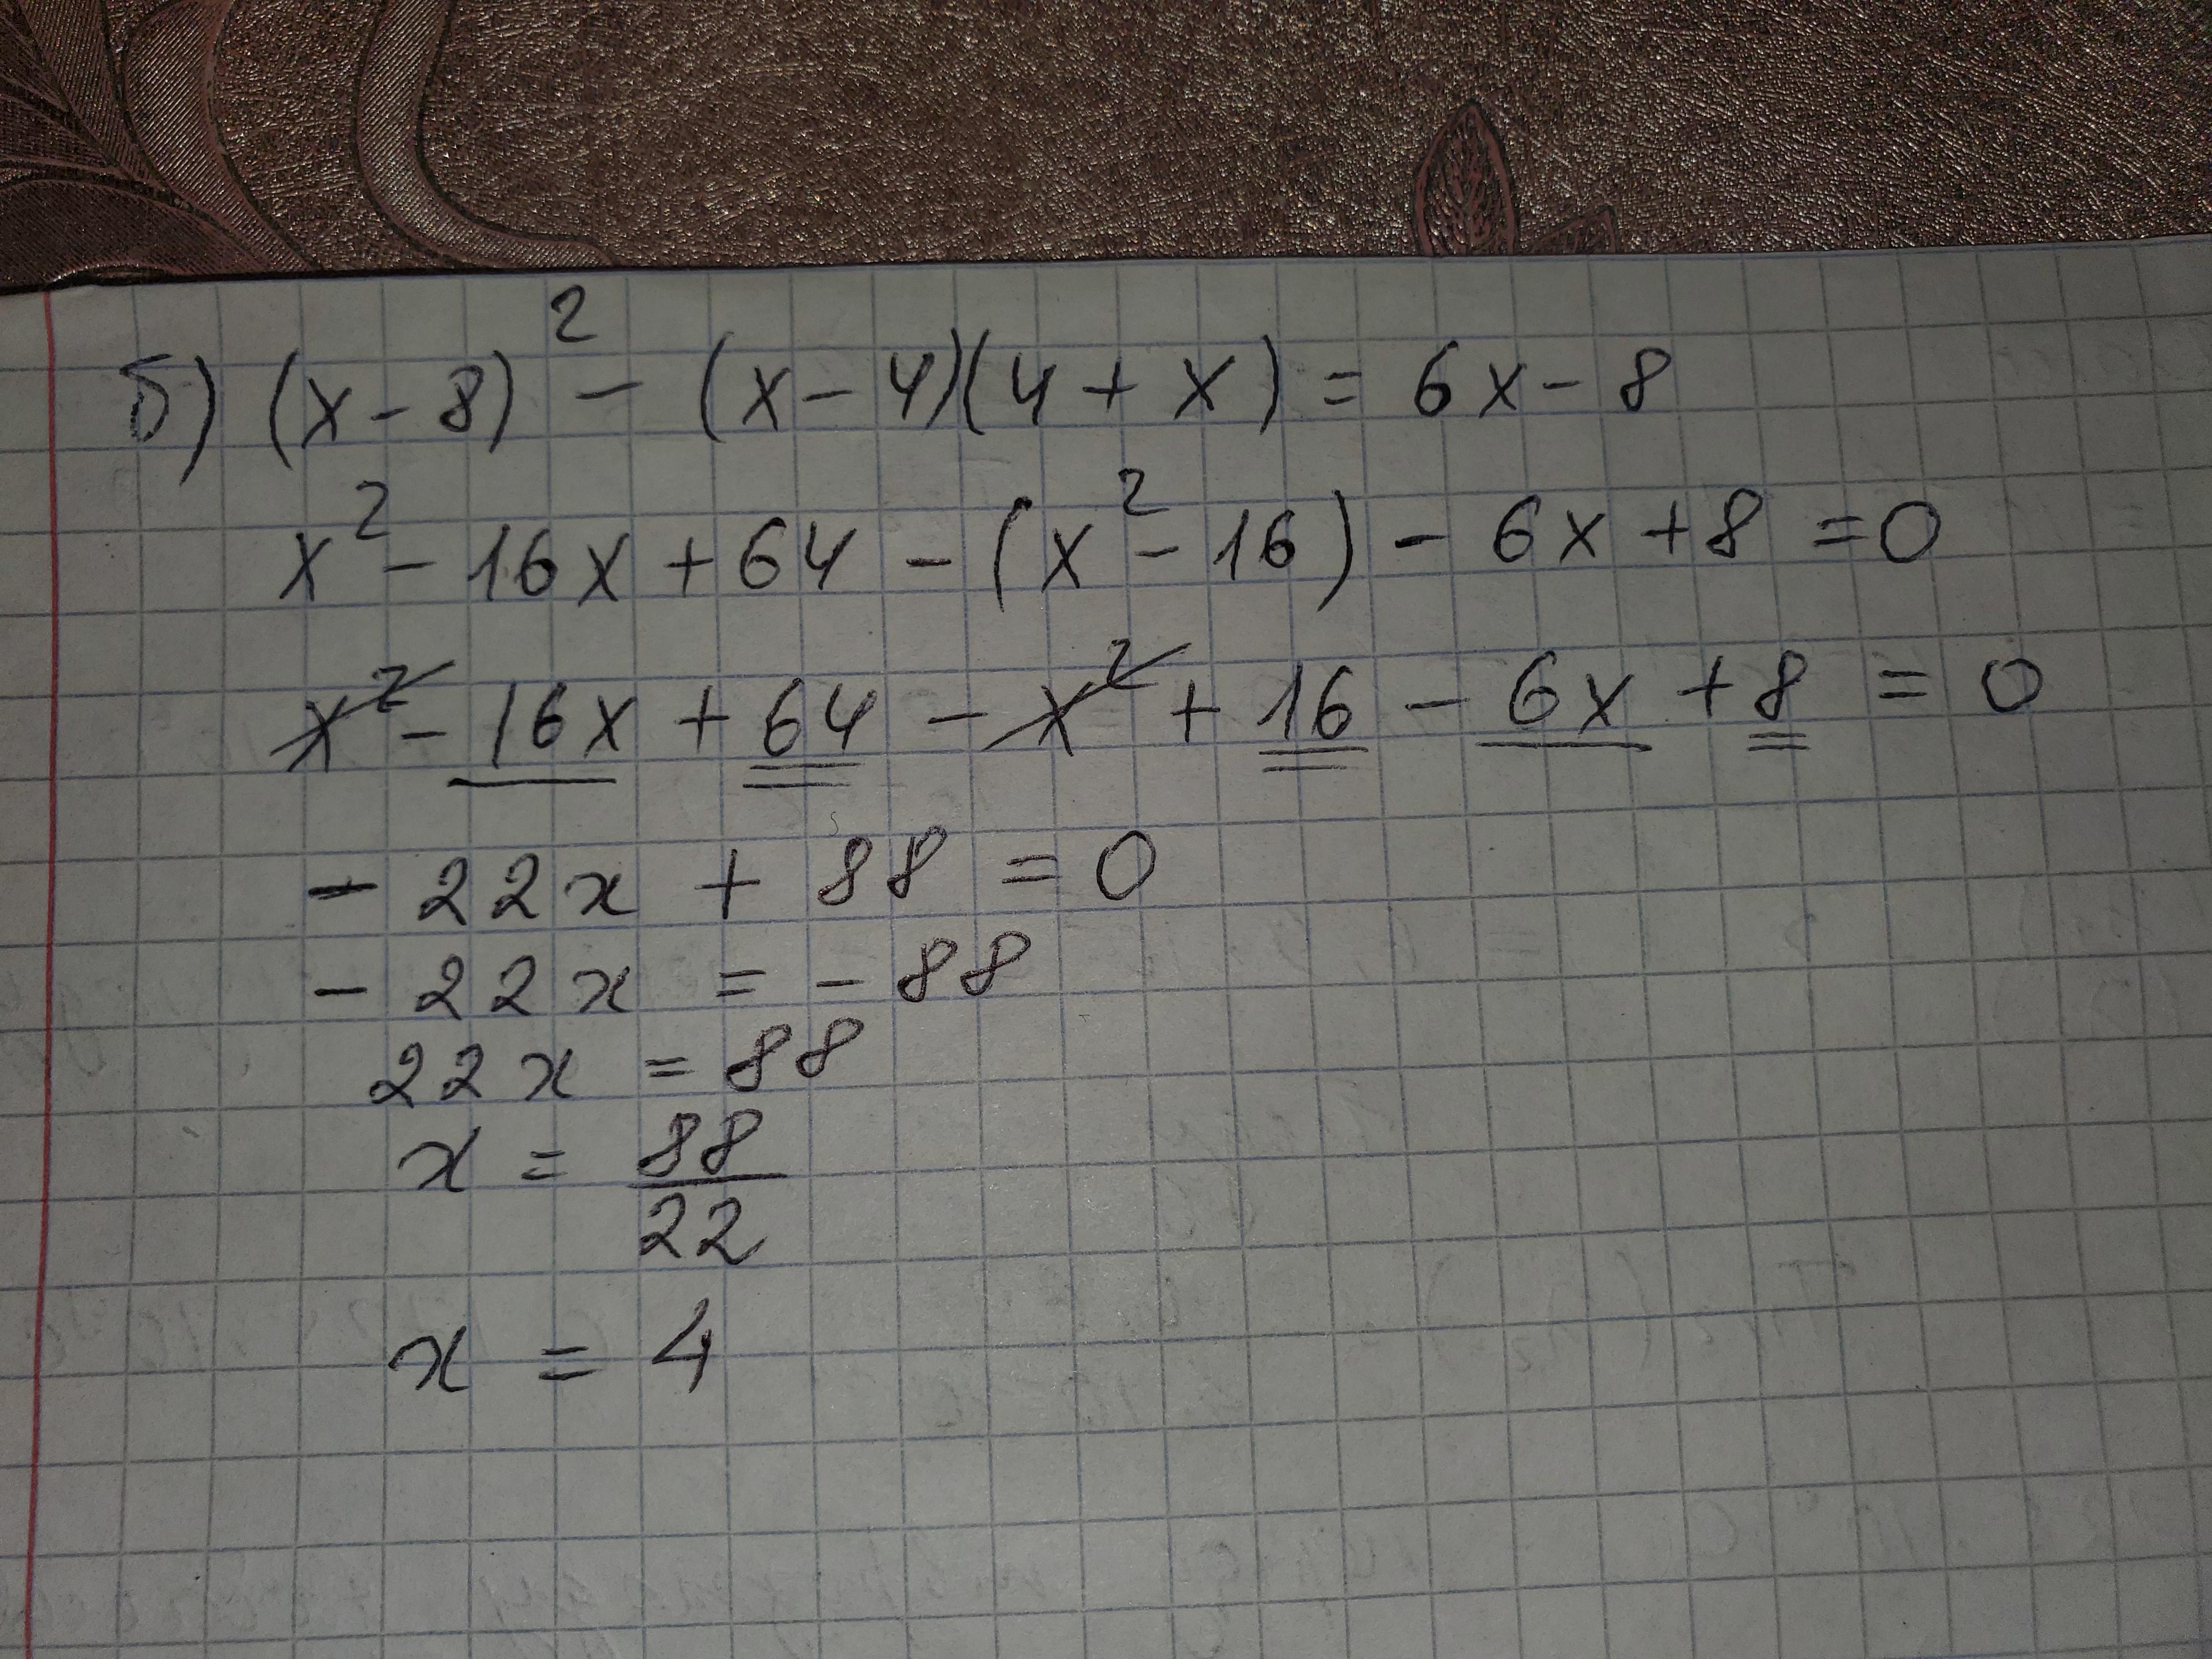 б) (x - 8)² - (x - 4)(4 + x) = 6x - 8
x² - 16x + 64 - (x² - 16) - 6x + 8 = 0
x² - 16x + 64 - x² + 16 - 6x + 8 = 0
- 22x + 88 = 0
- 22x = - 88
22x = 88
x = 88/22
x = 4